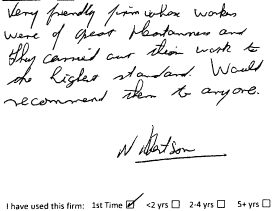 Very friendly firm whose workers
were of great pleasantness and
they carried out their work to
the highest standard. Would
recommend them to anyone.
N
I have used this firm: 1st Time ☑ <2 yrs ☐ 2-4 yrs ☐ 5+ yrs ☐